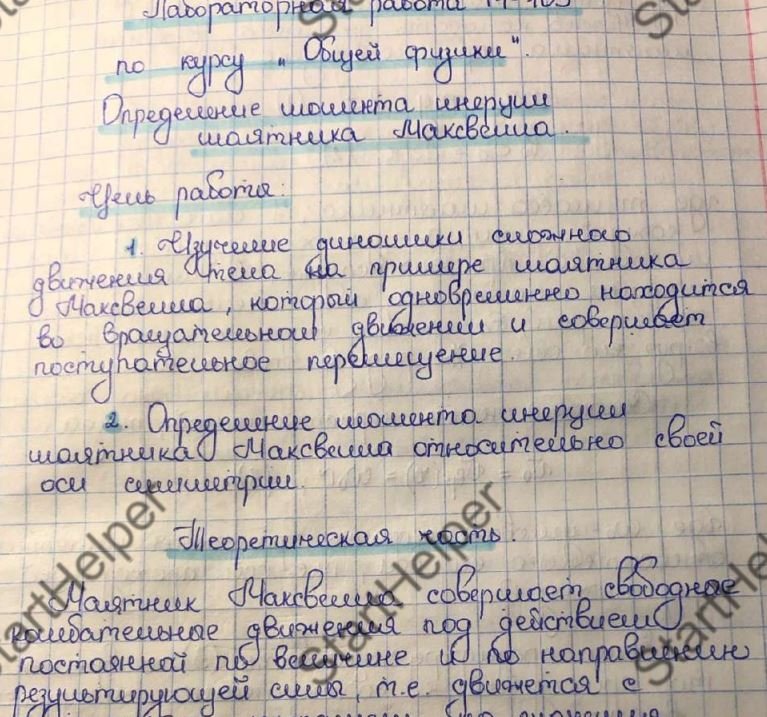 Лабораторная работа
по курсу "Общей физики".
Определение момента инерции
маятника Максвелла.
Цель работы:
1. Изучение динамики сложного
движения тела на примере маятника
Максвелла, который одновременно находится
во вращательном движении и совершает
поступательное перемещение.
2. Определение момента инерции
маятника Максвелла относительно своей
оси симметрии.
Теоретическая часть.
Маятник Максвелла совершает свободное
колебательные движения под действием
постоянной по величине и по направлению
результирующей силы, т.е. движется с
StartHelper
StartHelper
StartHelper